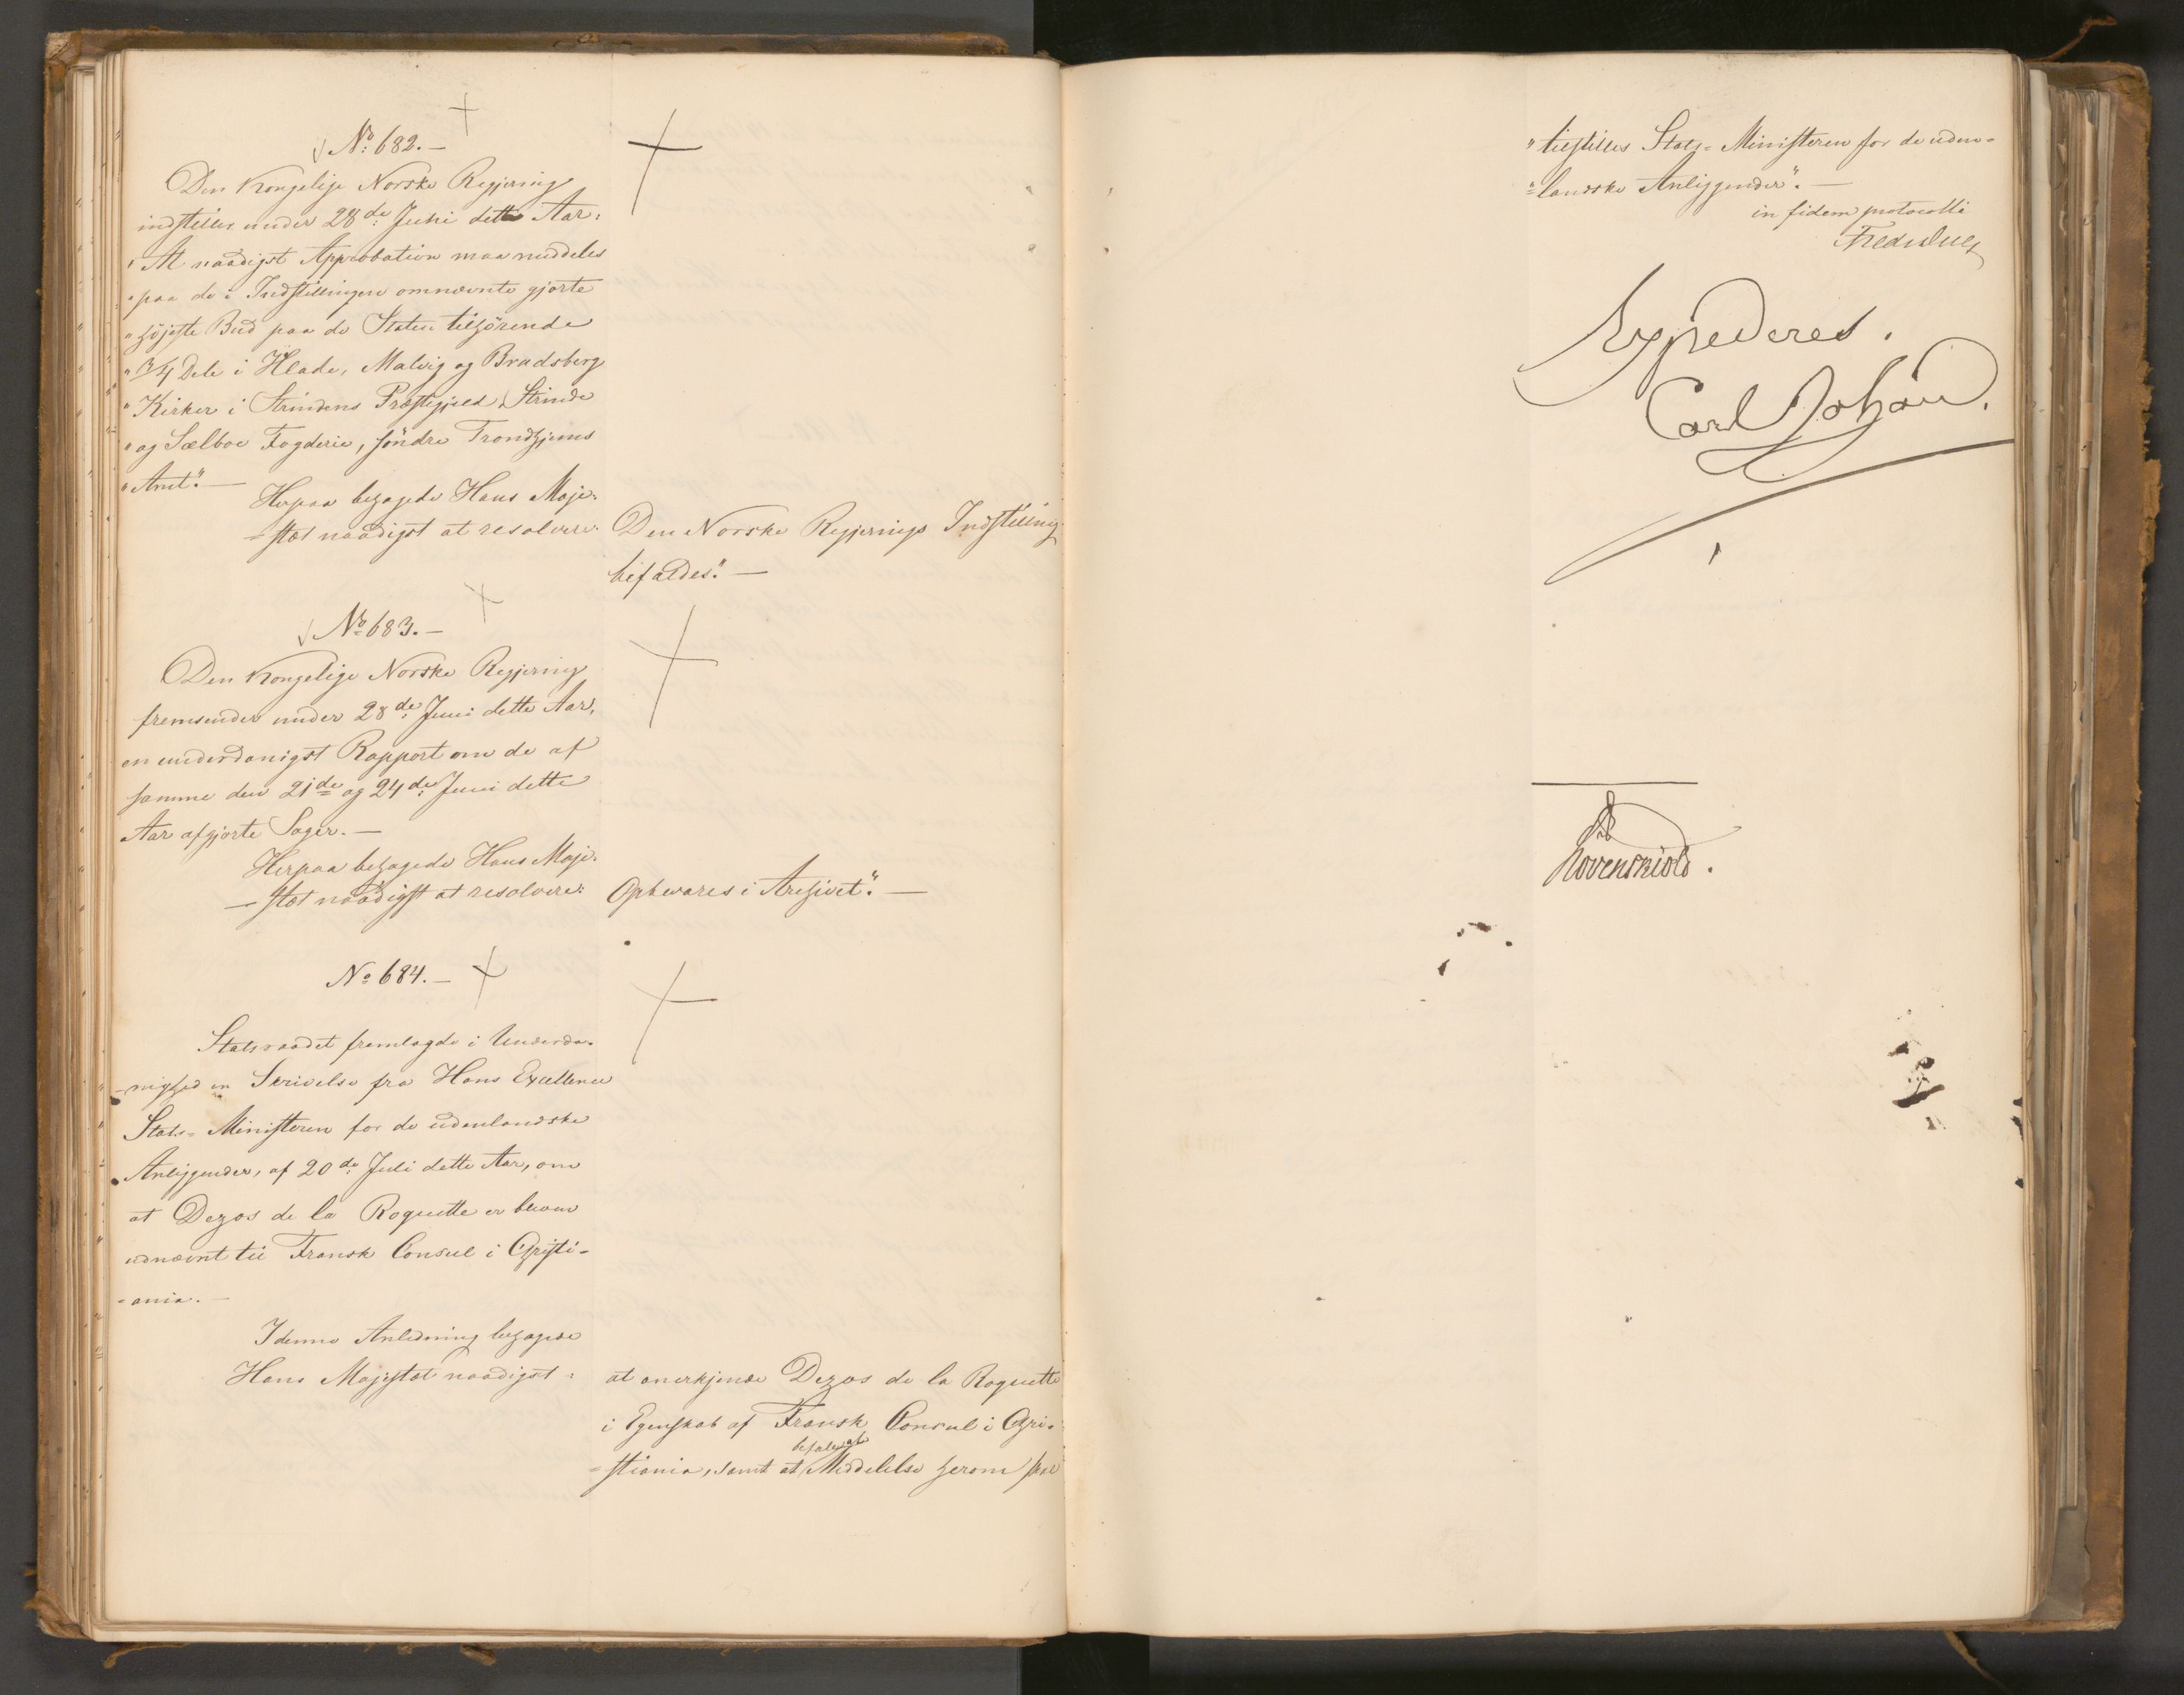 No. 682.-
Den Kongelige Norske Regjering
indstiller under 28de Juni dette Aar:
"At naadigst Approbation maa meddeles
"paa de i Indstillingen omnævnte gjorte
"højeste Bud paa de Staten tilhörende
"3/4 Dele i Hlade, Malvig og Bradsberg
"Kirker i Strindens Præstegjeld, Strinde
"og Sælboe Fogderie, söndre Trondhjems
"Amt".-
Herpaa behagede Hans Maje-
-stæt naadigst at resolvere:
Den Norske Regjerings Indstilling
bifaldes".-
No. 683.-
Den Kongelige Norske Regjering
fremsender under 28de Juni dette Aar,
en underdanigst Rapport om de af
samme den 21de og 24de Juni dette
Aar afgjorte Sager.-
Herpaa behagede Hans Maje-
-stæt naadigst at resolvere:
Opbevares i Archivet".-
No. 684.-
Statsraadet fremlagde i Underda-
-nighed en Skrivelse fra Hans Excellence
Stats-Ministeren for de udenlandske
Anliggender, af 20de Juli dette Aar, om
at Dezos de la Roquette er bleven
udnævnt til Fransk Consul i Christi-
-ania.-
I denne Anledning behagede
Hans Majestæt naadigst:
at anerkjende Dezos de la Roquette
i Egenskab af Fransk Consul i Chri-
befale at
-stiania, samt at Meddelelse herom skal
"tilstilles Stats-Ministeren for de uden-
"-landske Anliggender".-
in fidem protocolli
Fred Due
Expederes.
Carl Johan.
Lövenskiold.